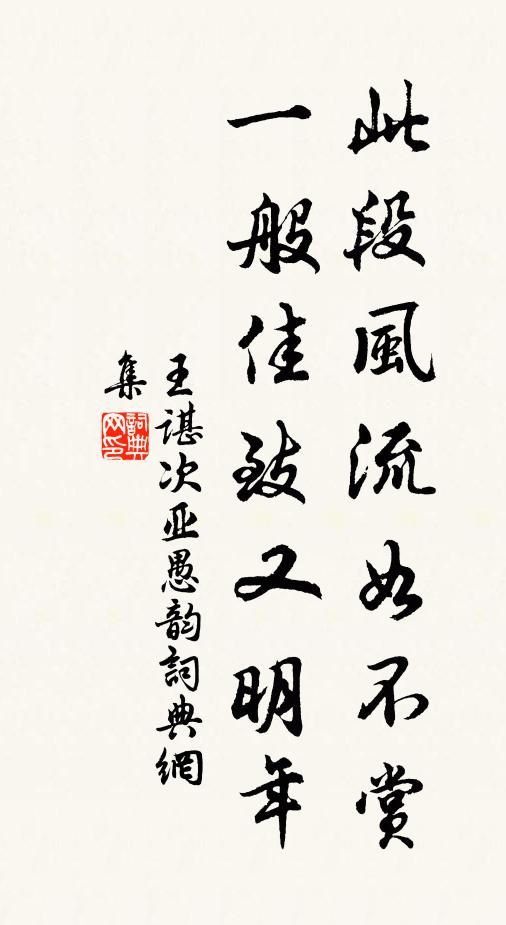 此段風流如不賞
一般佳致又明年
王諶次亚愚韵詞典網
集
詞典网印